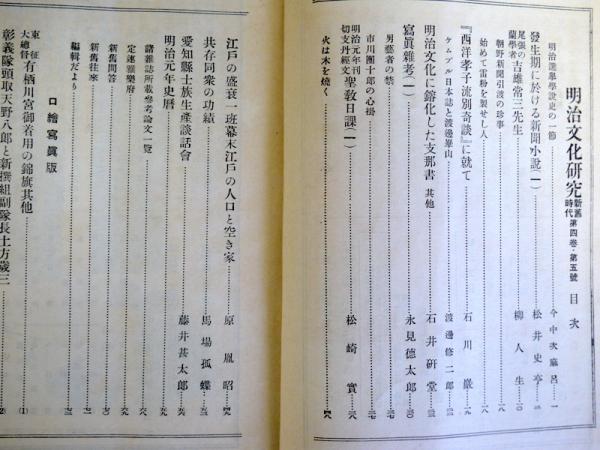 明治文化研究 新舊時代 第四卷・第五號 目次
明治選擧學說史の一節 今中次麿 呂…一
發生期に於ける新聞小說(一) 松井史亭…二
尾張の蘭學者 吉雄常三先生 柳人生…一〇
朝野新聞引渡の珍事…一八
始めて雷粉を製せし人…一八
『西洋孝子流別奇談』に就て 石川巖…一九
ケムプル『日本誌』と渡邊崋山 渡邊修二郎…二三
明治文化に鎔化した支那書 其他 石井研堂…二三
寫眞雜考(一) 永見德太郎
男藝者の禁…二七
市川團十郎の心掛…三七
明治元年刊切支丹經文 聖敎日課(一) 松崎實…三八
火は木を燒く…四八
江戶の盛衰一班幕末江戶の人口と空き家 原胤昭…四九
共存同衆の功績 馬場孤蝶…五三
愛知縣士族生產談話會 藤井甚太郎…五六
明治元年史曆…六五
諸雜誌所載參考論文一覽…六八
定連題樂府…六九
新舊問答…七〇
新舊往來…七一
編輯だより…七二
口繪寫眞版
東征大總督 有栖川宮御着用の錦旗其他…(1)
彰義隊頭取天野八郎と新撰組副隊長土方歲三…(2)